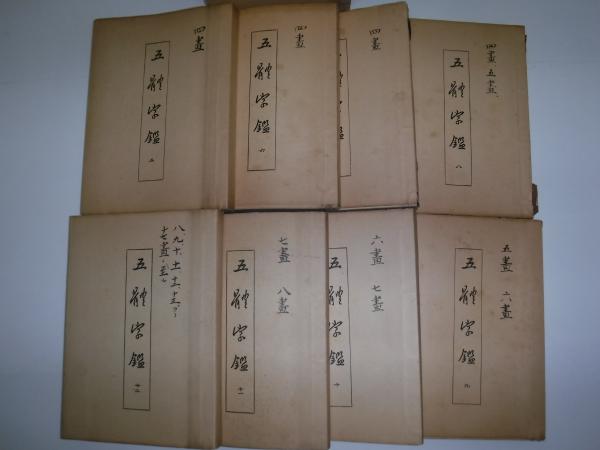 四畫
五體字鑑
四畫
五體字鑑
六
四畫
體字鑑
四畫、五畫、
五體字鑑
八
八、九、十、
五體字鑑
十二
七畫
八畫
五體字鑑
十一
六畫
七畫
五體字鑑
十
五畫
六畫
五體字鑑
九